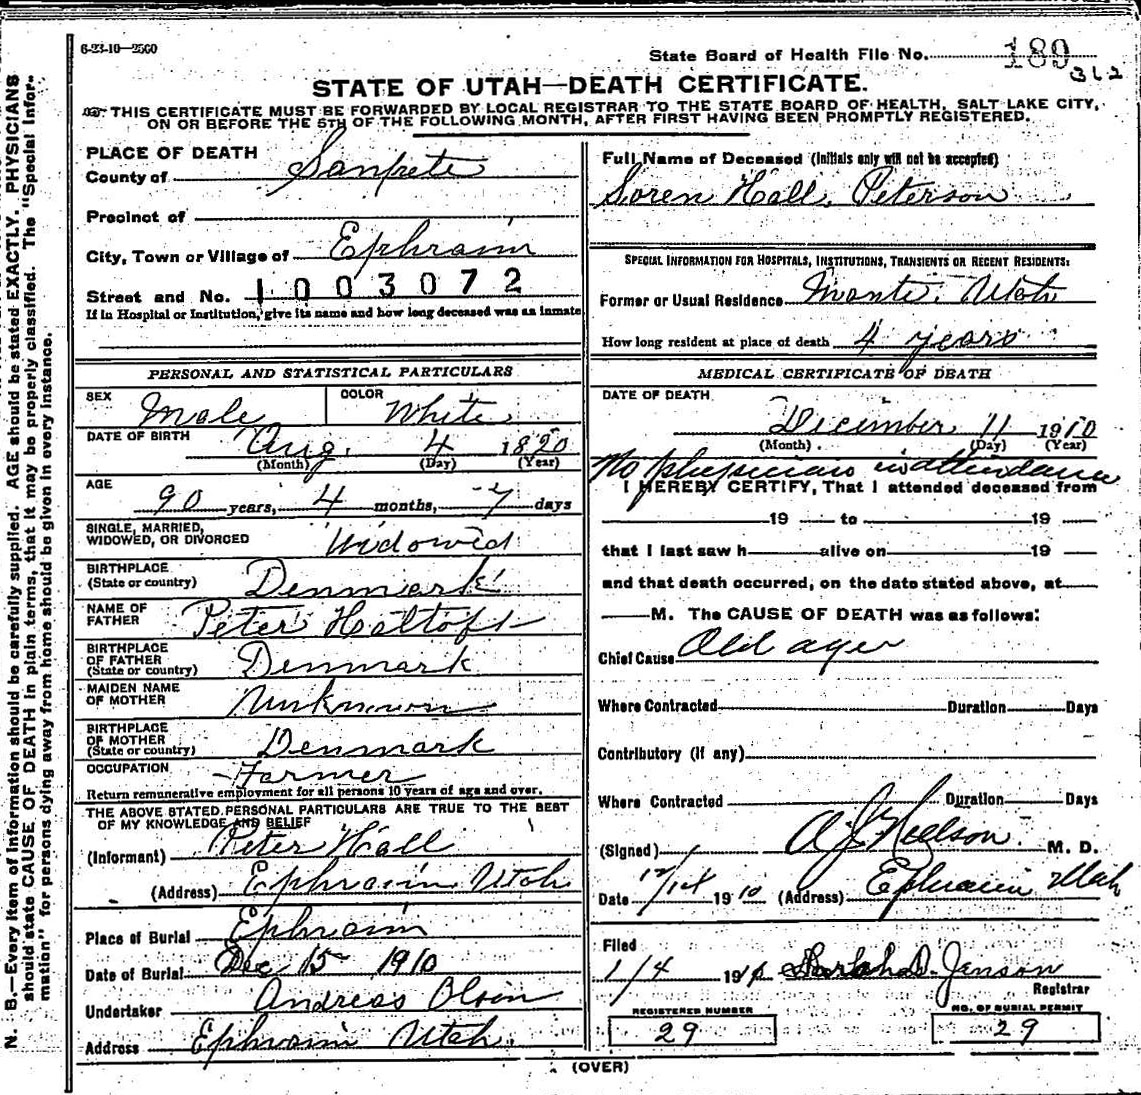 6-23-10—2500
State Board of Health File No. 189
312
STATE OF UTAH—DEATH CERTIFICATE.
THIS CERTIFICATE MUST BE FORWARDED BY LOCAL REGISTRAR TO THE STATE BOARD OF HEALTH, SALT LAKE CITY,
ON OR BEFORE THE 5TH OF THE FOLLOWING MONTH, AFTER FIRST HAVING BEEN PROMPTLY REGISTERED.
PLACE OF DEATH
County of Sanpete
Precinct of
City, Town or Village of Ephraim
Street and No. 1003072
If in Hospital or Institution, give its name and how long deceased was an inmate
PERSONAL AND STATISTICAL PARTICULARS
SEX Male COLOR White
DATE OF BIRTH Aug. 4 1820
(Month) (Day) (Year)
AGE
90 years, 4 months, 7 days
SINGLE, MARRIED,
WIDOWED, OR DIVORCED Widowed
BIRTHPLACE
(State or country) Denmark
NAME OF
FATHER Peter Haltoft
BIRTHPLACE
OF FATHER
(State or country) Denmark
MAIDEN NAME
OF MOTHER Unknown
BIRTHPLACE
OF MOTHER
(State or country) Denmark
OCCUPATION Farmer
Return remunerative employment for all persons 10 years of age and over.
THE ABOVE STATED PERSONAL PARTICULARS ARE TRUE TO THE BEST
OF MY KNOWLEDGE AND BELIEF
(Informant) Peter Hall
(Address) Ephraim Utah
Place of Burial Ephraim
Date of Burial Dec 15 1910
Undertaker Andreas Olsen
Address Ephraim Utah.
Full Name of Deceased (Initials only will not be accepted)
Soren Hall Peterson
SPECIAL INFORMATION FOR HOSPITALS, INSTITUTIONS, TRANSIENTS OR RECENT RESIDENTS:
Former or Usual Residence Manti, Utah
How long resident at place of death 4 years
MEDICAL CERTIFICATE OF DEATH
DATE OF DEATH
December 11 1910
(Month) (Day) (Year)
No physician in attendance
I HEREBY CERTIFY, That I attended deceased from
19 to 19
that I last saw h alive on 19
and that death occurred, on the date stated above, at
M. The CAUSE OF DEATH was as follows:
Chief Cause Old age
Where Contracted Duration Days
Contributory (if any)
Where Contracted Duration Days
(Signed) A. J. Nielson. M. D.
Date 12/14 1910 (Address) Ephraim Utah
Filed
1/4 191 Sarah D. Jenson
Registrar
REGISTERED NUMBER
29
NO. OF BURIAL PERMIT
29
(OVER)
N. B.—Every item of information should be carefully supplied. AGE should be stated EXACTLY. PHYSICIANS
should state CAUSE OF DEATH in plain terms, that it may be properly classified. The "Special Infor-
mation" for persons dying away from home should be given in every instance.